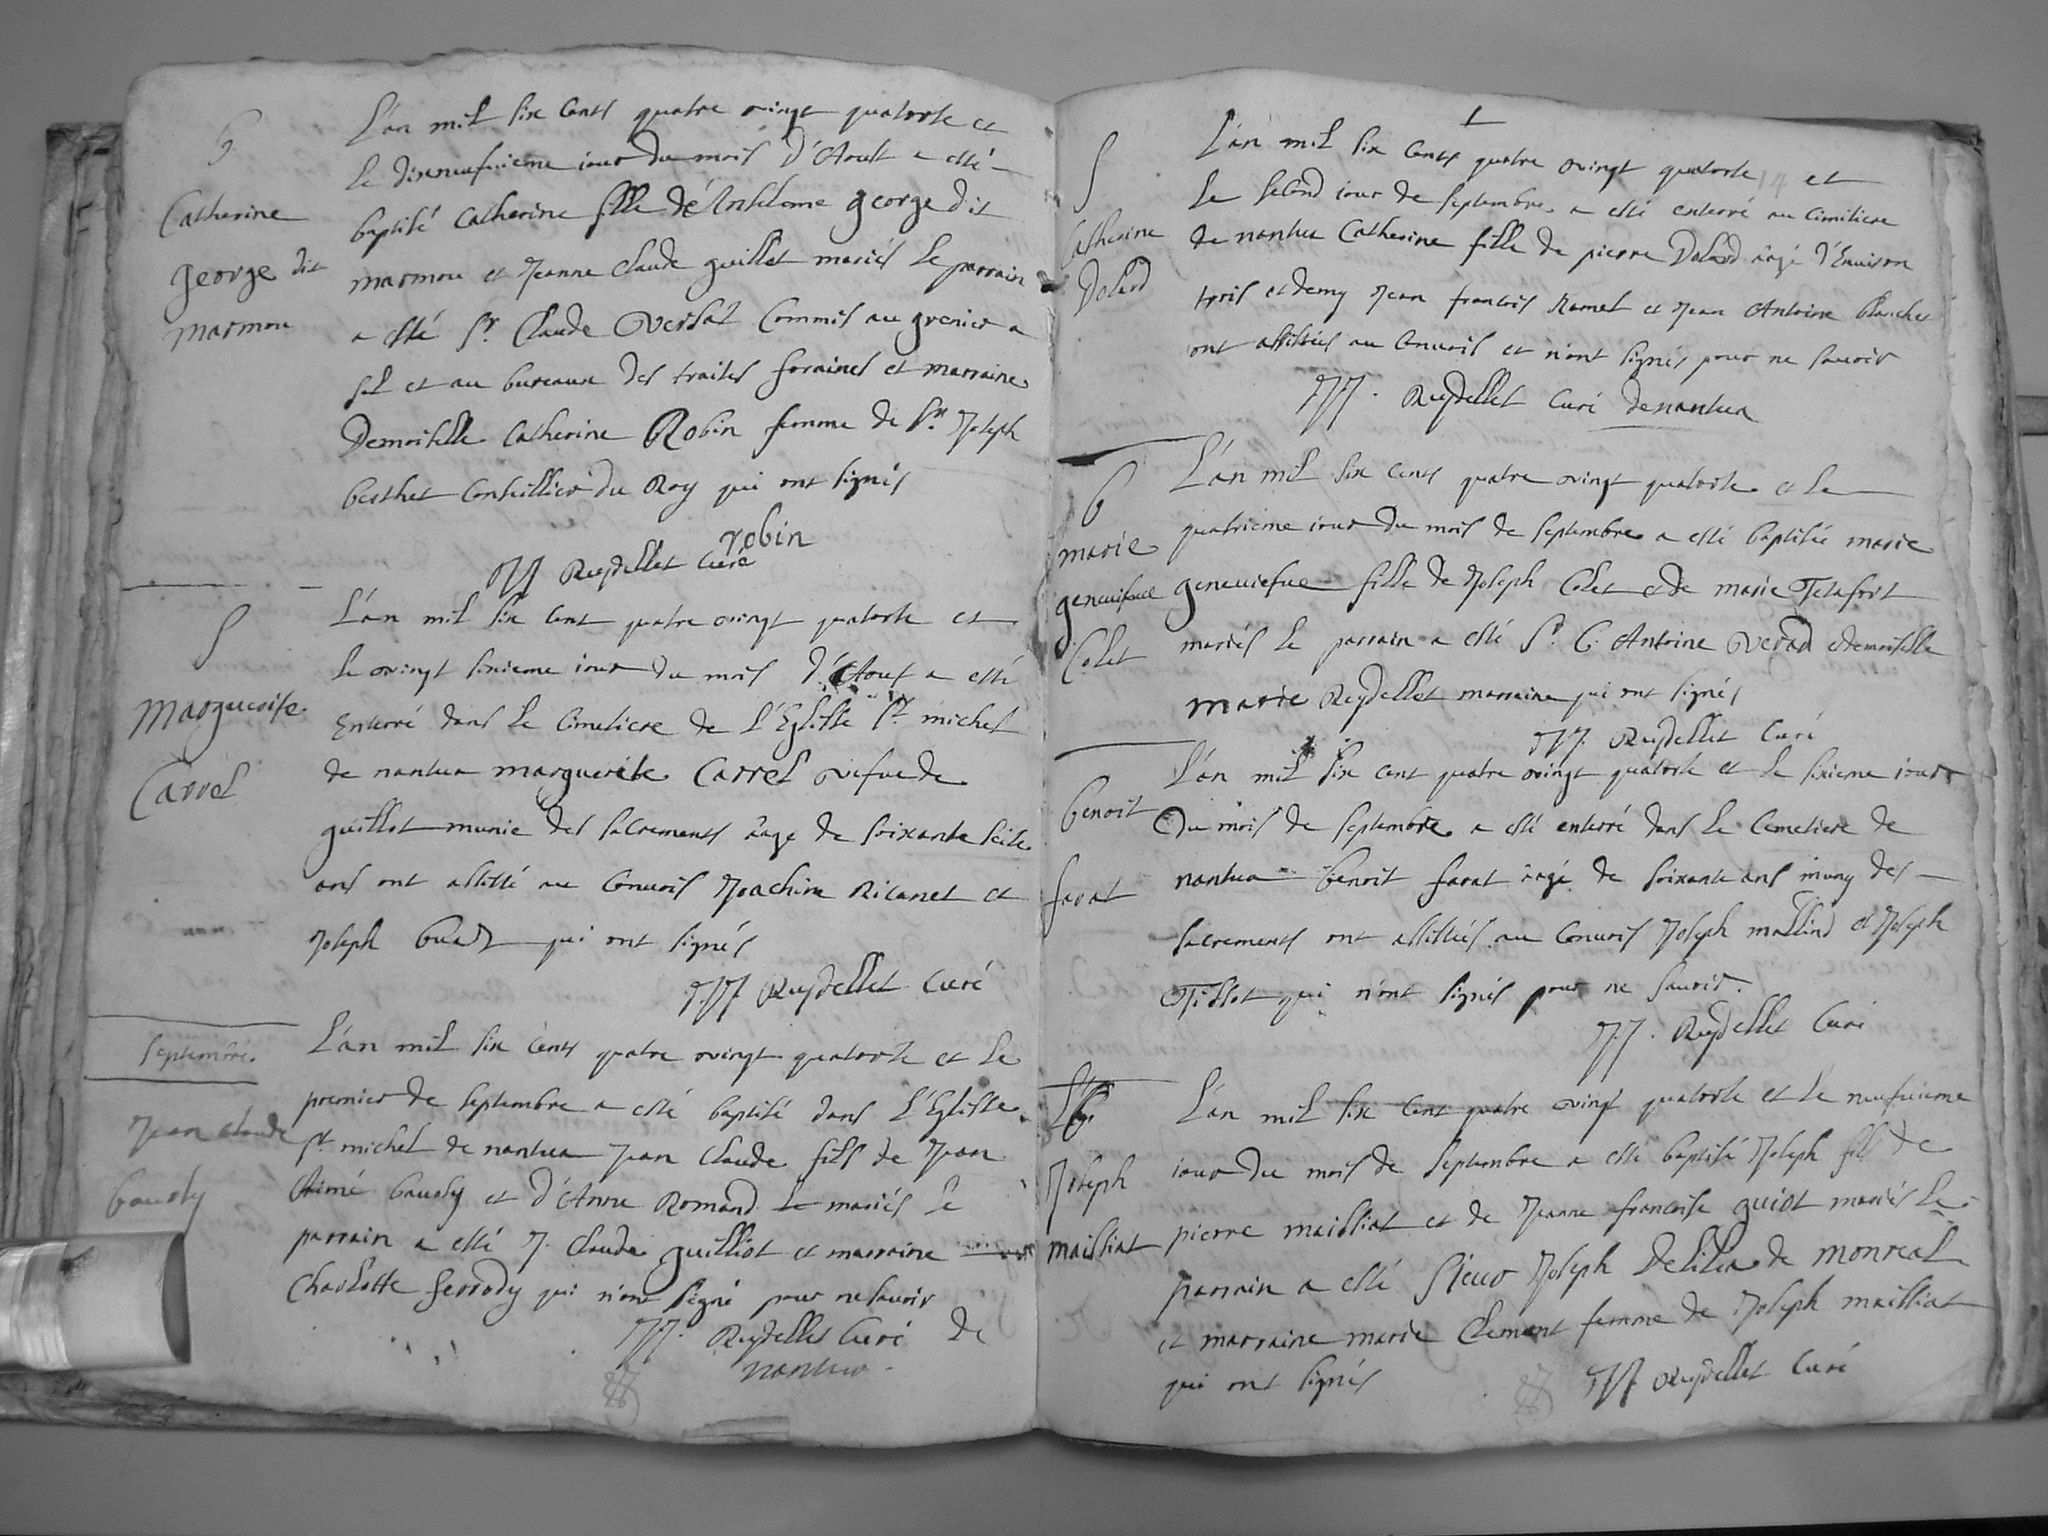 b
Catherine
george dit
marmou
L'an mil six cents quatre vingt quatorse et
le dixneufuieme iour du mois d'Aoust a esté
baptisé Catherine fille de Anthelome george dit
marmou et Jeanne Claude guillot mariés le parrain
a esté Sr. Claude Versat Commis au grenier a
sel et au bureaux des traites foraines et marraine
Demoiselle Catherine Robin femme de Sr. Joseph
berthet Conseillier du Roy qui ont signés
robin
JJ Reydellet Curé
S
Marguerite
Carrel
L'an mil six cent quatre vingt quatorse et
le vingt sixieme iour du mois d'Aoust a esté
Enterré dans le Cimetiere de L'Eglisse St. michel
de nantua marguerite Carrel vefue de
guillot munie des sacrements âage de soixante seise
ans ont assisté au Convois Joachim Ricanet et
Joseph qui ont signés
J.JJ. Reydellet Curé
Septembre.
Jean Claude
baudy
L'an mil six cents quatre vingt quatorse et le
premier de septembre a esté baptisé dans L'Eglisse
St. michel de nantua Jean Claude fils de Jean
Aimé baudy et d'Anne Romand mariés le
parrain a esté J. Claude guilliot et marraine
Charlotte ferrody qui n'ont signé pour ne sauoir
JJJ. Reydellet Curé de
nantua
S
Catherine
Dolard
L'an mil six cents quatre vingt quatorse 14 et
le second iour de septembre a esté enterré au Cimitiere
de nantua Catherine fille de pierre Dolard âagé d'Enuiron
trois et demy Jean francois Ramel et Jean Antoine blanchet
ont assistés au Conuois et n'ont signés pour ne sauoir
JJJ. Reydellet Curé de nantua
b
marie
geneuiefue
Colet
L'an mil six cents quatre vingt quatorse et le
quatrieme iour du mois de septembre a esté baptisée marie
geneuiefue fille de Joseph Colet et de marie Tetafort
mariés le parrain a esté Sr. C. Antoine Verad et demoiselle
marie Reydellet marraine qui ont signés
JJJ. Reydellet Curé
benoit
fauat
L'an mil six cent quatre vingt quatorse et le sixieme iour
Du mois de septembre a esté enterré dans le Cemetiere de
nantua benoit fauat âagé de soixante ans muny des
sacrements ont assistés au Conuois Joseph massind et Joseph
Tissot qui n'ont signés pour ne sauoir.
J.J. Reydellet Curé
b
Joseph
maissiat
L'an mil six cent quatre vingt quatorse et le neufuieme
iour du mois de septembre a esté baptisé Joseph fils de
pierre maissiat et de Jeanne francoise guiot mariés le
parrain a esté Sieur Joseph Delilia de monreal
et marraine marie Clement femme de Joseph maissiat
qui ont signés
JJJ Reydellet Curé